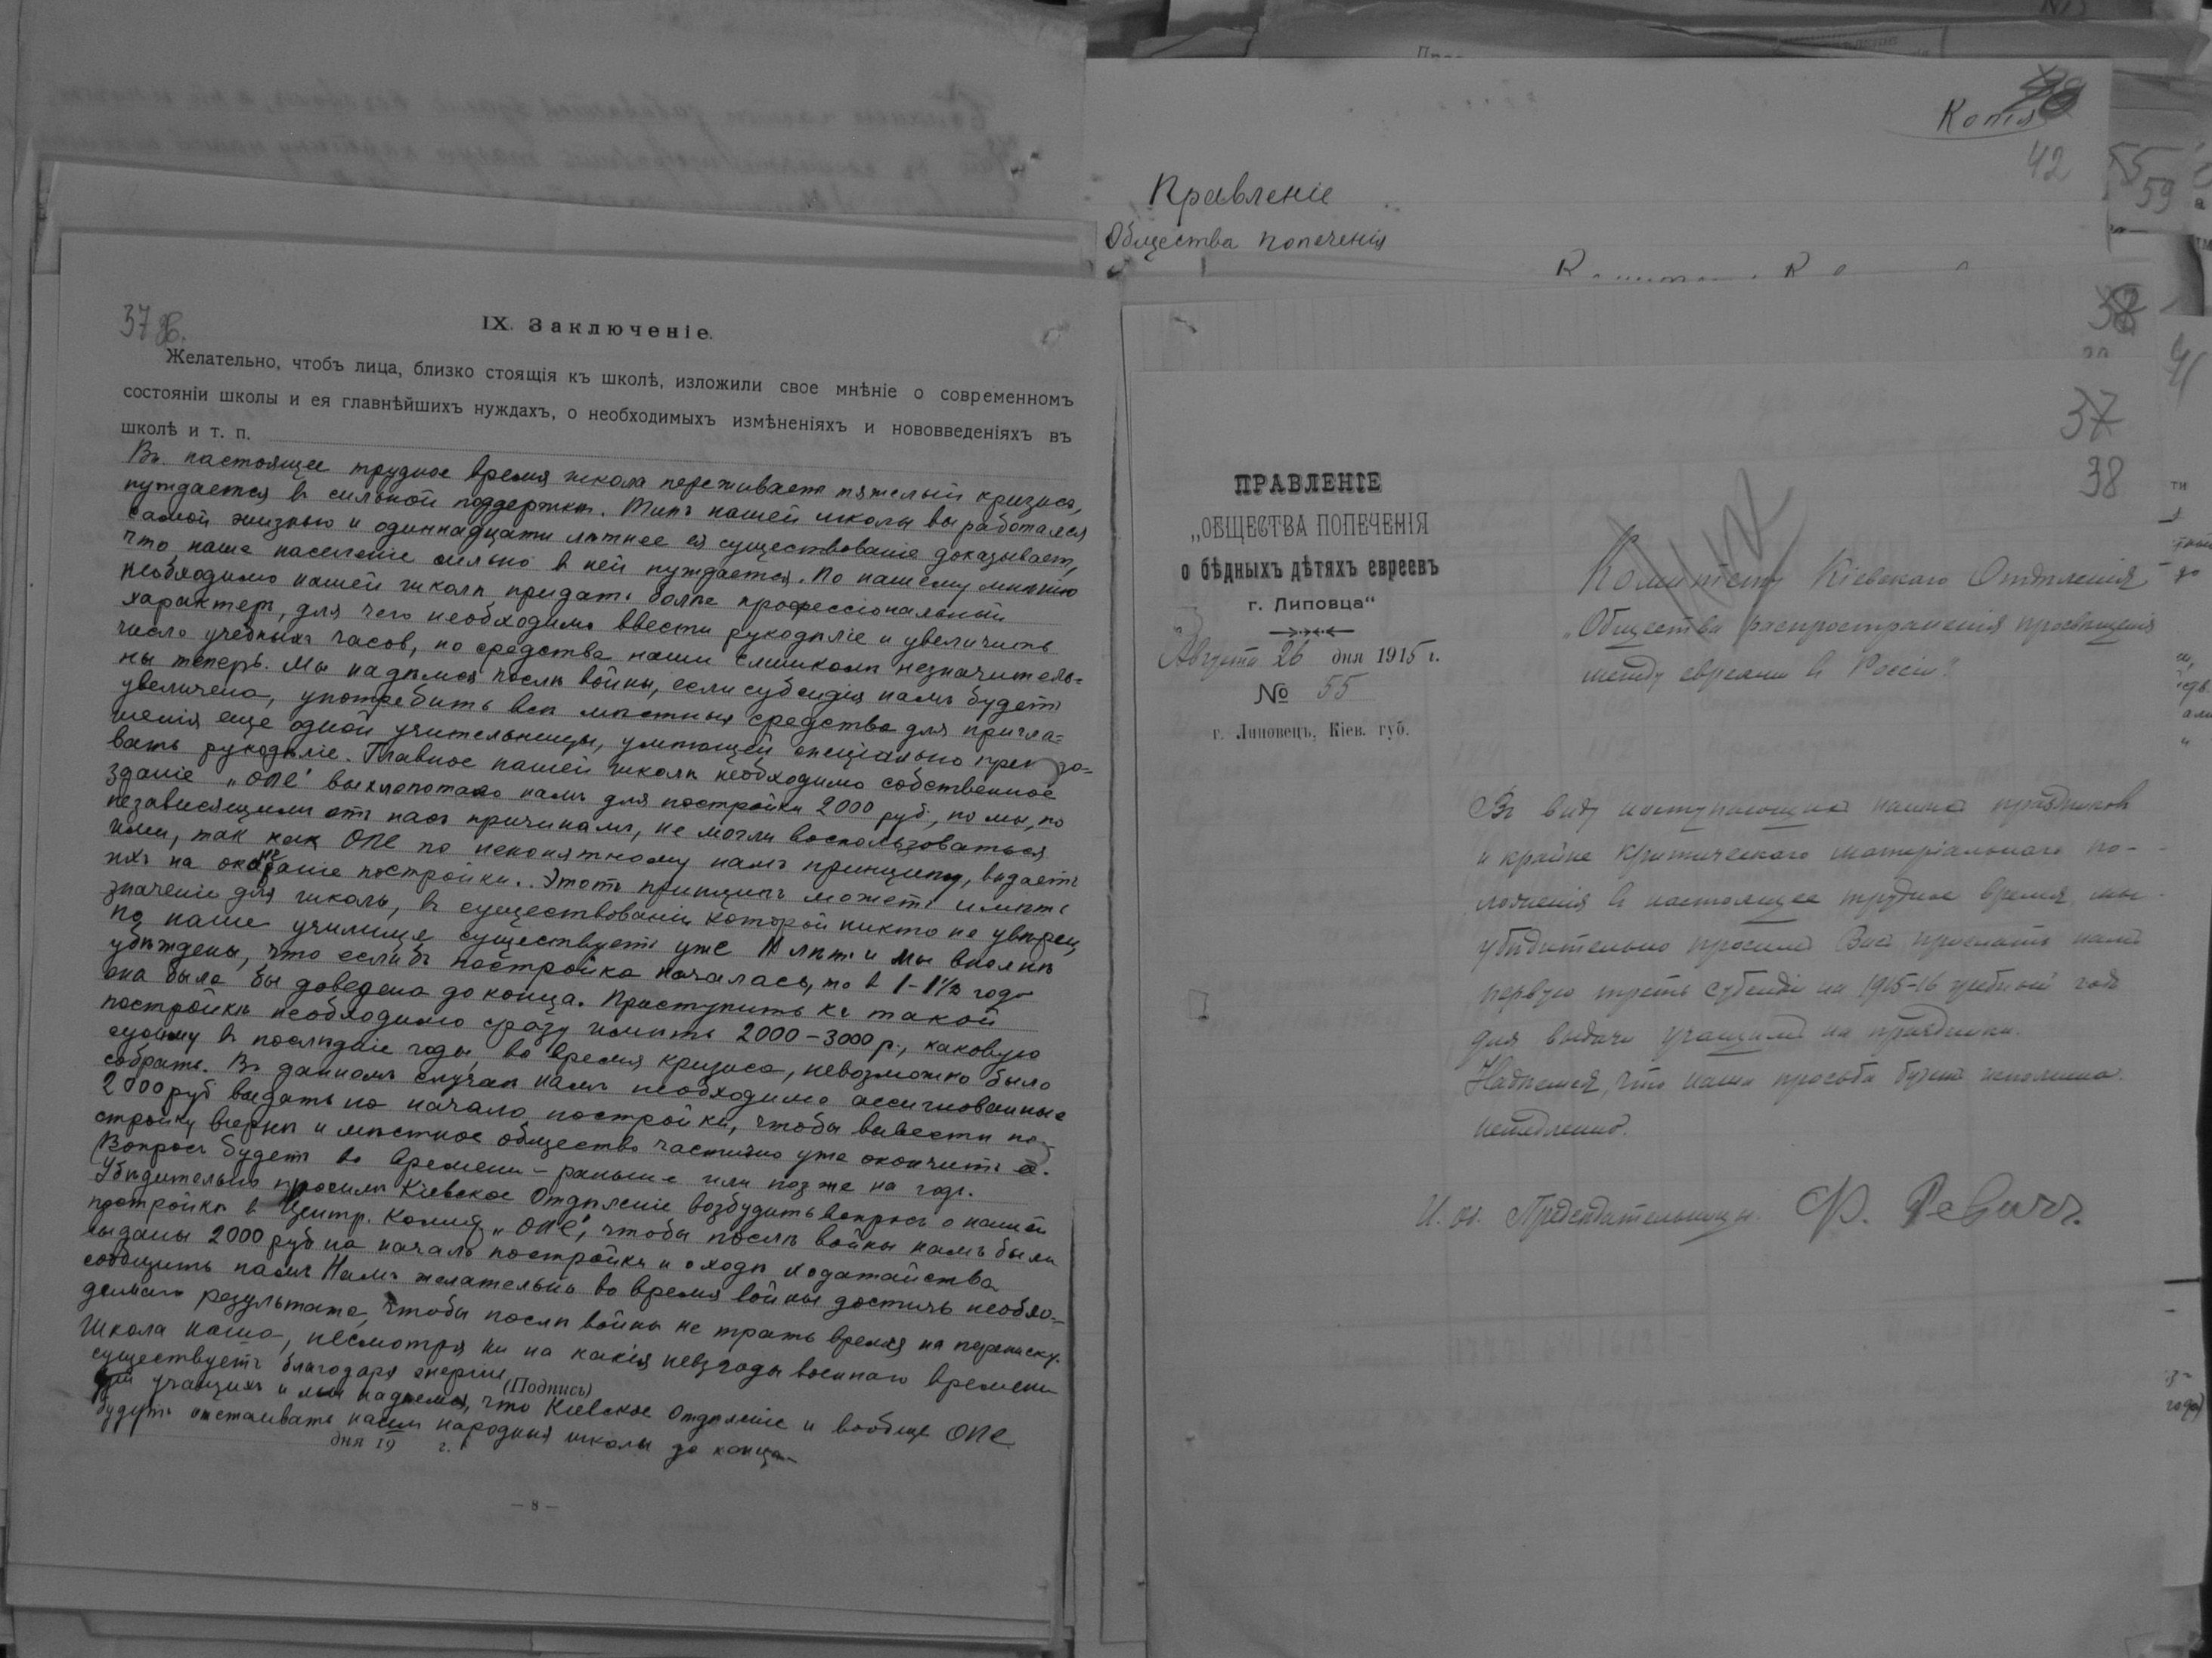 37 об.
IX. Заключеніе.
Желательно, чтобъ лица, близко стоящія къ школѣ, изложили свое мнѣніе о современномъ
состояніи школы и ея главнѣйшихъ нуждахъ, о необходимыхъ измѣненіяхъ и нововведеніяхъ въ
школѣ и т. п.
Въ настоящее трудное время школа переживаетъ тяжелый кризисъ,
нуждается въ сильной поддержкѣ. Типъ нашей школы выработался
самой жизнью и одиннадцати лѣтнее ея существованіе доказываетъ,
что наше населеніе сильно в ней нуждается. По нашему мнѣнію
необходимо нашей школѣ придать болѣе профессіональный
характеръ, для чего необходимо ввести рукодѣліе и увеличить
число учебныхъ часов, но средства наши слишкомъ незначитель=
ны теперь. Мы надѣемся послѣ войны, если субсидія намъ будетъ
увеличена, употребить всѣ мѣстныя средства для пригла=
шенія еще одной учительницы, умѣющей спеціально препода=
вать рукодѣліе. Главное нашей школѣ необходимо собственное
зданіе „ОПЕ" выхлопотало намъ для постройки 2000 руб., но мы, по
независящимъ отъ насъ причинамъ, не могли воспользоваться
ими, так как ОПЕ по непонятному намъ принципу, выдаетъ
ихъ на окончаніе постройки. Этотъ принципъ можетъ имѣть
значеніе для школъ, въ существованіи которой никто не увѣрен,
но наше училище существуетъ уже 11 лѣтъ и мы вполнѣ
убѣждены, что еслибъ постройка началась, то в 1-1½ года
она была бы доведена до конца. Приступить къ такой
постройкѣ необходимо сразу имѣть 2000-3000 р., каковую
сумму въ послѣдніе годы, во время кризиса, невозможно было
собрать. Въ данномъ случаѣ намъ необходимо ассигнованные
2000 руб выдать на начало постройки, чтобы вывести по=
стройку вчернѣ и мѣстное общество частично уже окончитъ ея.
Вопросъ будетъ во времени - раньше или позже на годъ.
Убѣдительно просимъ Кіевское Отдѣленіе возбудить вопросъ о нашей
постройкѣ в Центр. Комит „ОПЕ", чтобы послѣ войны намъ были
выданы 2000 руб на начало постройки и о ходѣ ходатайства
сообщить намъ Намъ желательно во время войны достичь необхо-
димаго результата, чтобы послѣ войны не трать время на переписку.
Школа наша, несмотря ни на какія невзгоды военнаго времени
существуетъ благодаря энергіи
(Подпись)
учащихъ и мы надѣемся, что Кіевское Отдѣленіе и вообще ОПЕ
будутъ отстаивать наши народныя школы до конца
дня 19 г.
— 8 —
Копія
42
Правленіе
Общества попеченія
55
59
38
37
38
41
ПРАВЛЕНІЕ
„ОБЩЕСТВА ПОПЕЧЕНІЯ
о бѣдныхъ дѣтяхъ евреевъ
г. Липовца"
Августа 26 дня 1915 г.
№ 55
г. Липовецъ, Кіев. губ.
Комитету Кіевскаго Отдѣленія
„Общества распространенія просвѣщенія
между евреями въ Россіи".
Въ виду наступающихъ нашихъ праздниковъ
и крайне критическаго матеріальнаго по-
ложенія въ настоящее трудное время, мы
убѣдительно просимъ Васъ прислать намъ
первую треть субсидіи на 1915-16 учебный год
для выдачи учащимъ на праздники.
Надѣемся, что наша просьба будетъ исполнена
немедленно.
И. об. Предсѣдательницы Ф. Ревичъ.